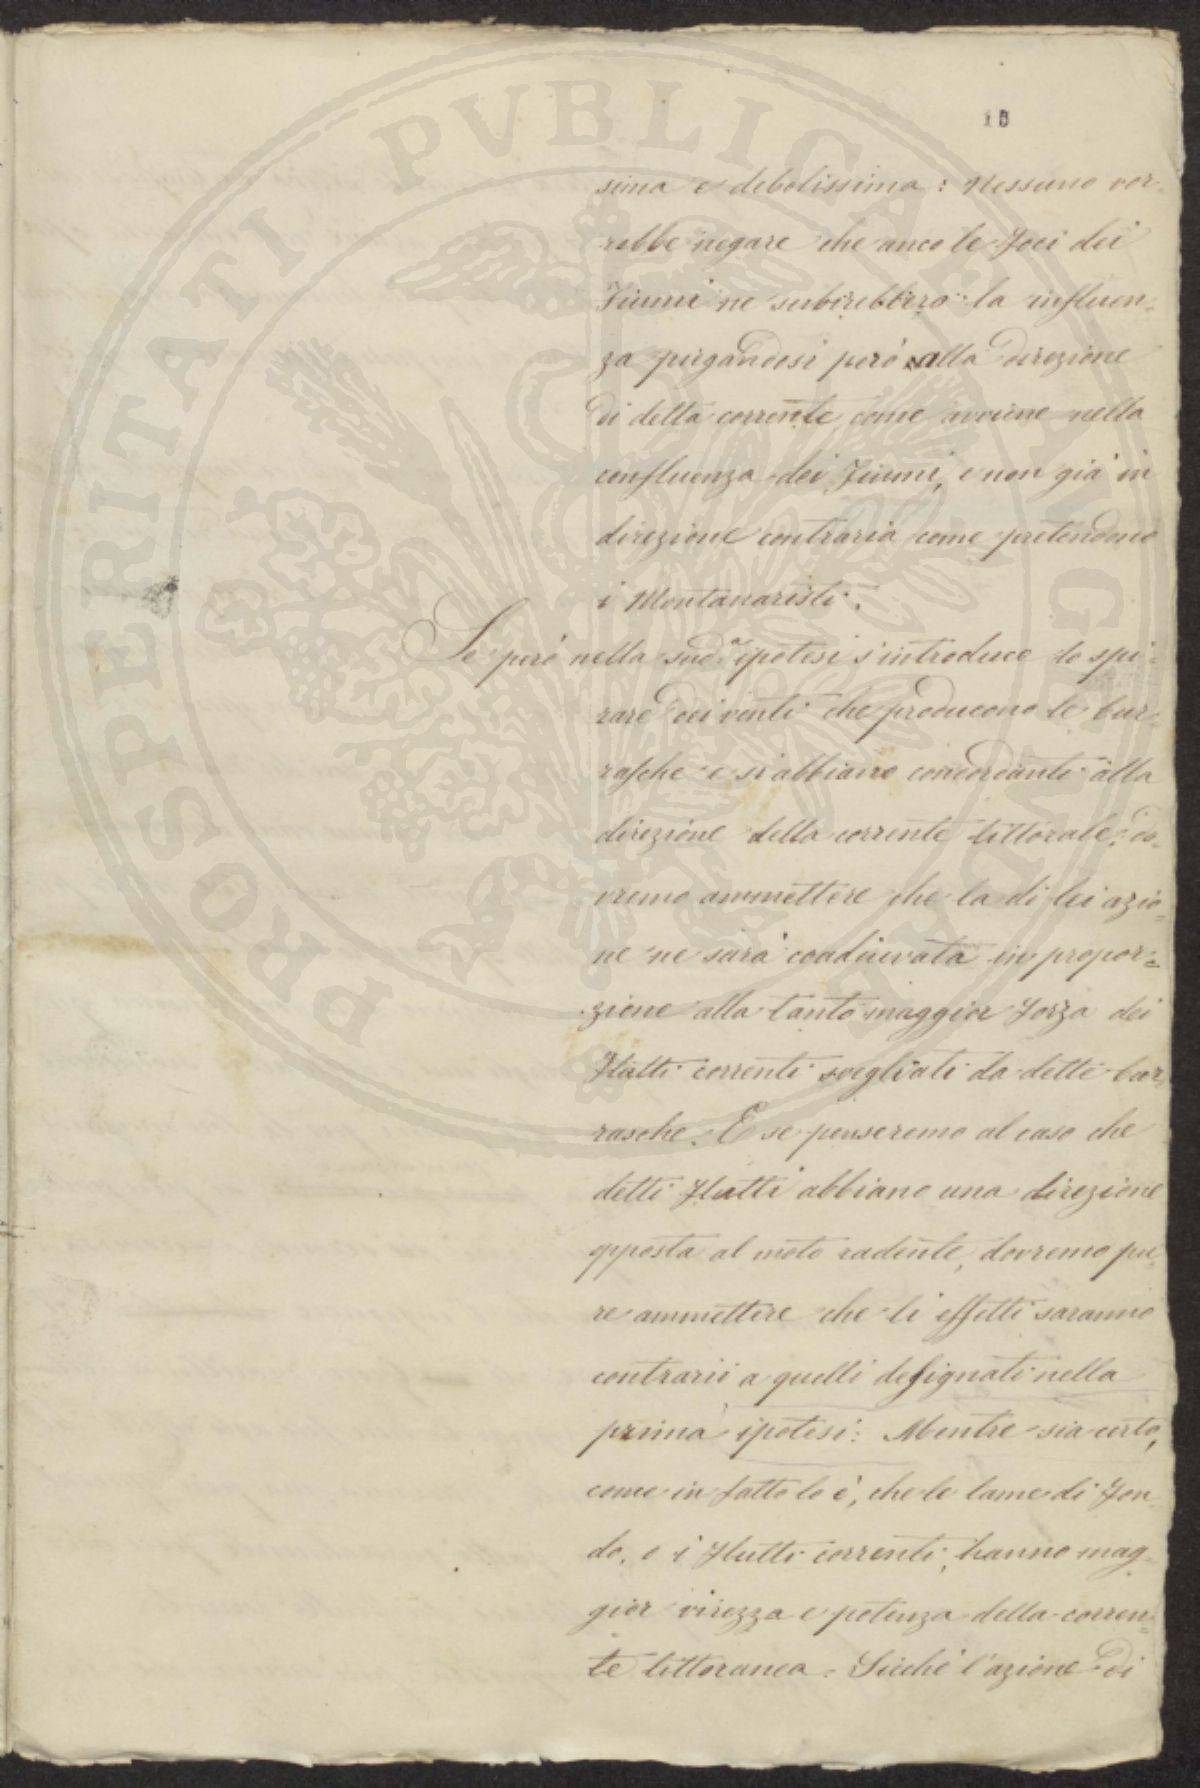 PROSPERITATI PVBLICAE AVGENDAE
10
sima e debolissima: nessuno vor-
rebbe negare che anco le Foci dei
Fiumi ne subirebbero la influen-
za piegandosi però alla direzione
di detta corrente come avviene nella
confluenza dei Fiumi, e non già in
direzione contraria come pretendono
i Montanaristi.
Se però nella sud.a ipotesi s'introduce lo spi-
rare dei venti che producono le bur-
rasche e si abbiano concordanti alla
direzione della corrente littorale, do-
vremo ammettere che la di lei azio-
ne ne sarà coadiuvata in propor=
zione alla tanto maggior Forza dei
Flutti correnti svegliati da dette bur-
rasche. E se penseremo al caso che
detti Flutti abbiano una direzione
opposta al moto radente, dovremo pu-
re ammettere che li effetti saranno
contrarii a quelli designati nella
prima ipotesi: Mentre sia certo,
come in fatto lo è, che le lame di Fon-
do, e i Flutti correnti, hanno mag-
gior vivezza e potenza della corren-
te littoranea. Sicchè l'azione di